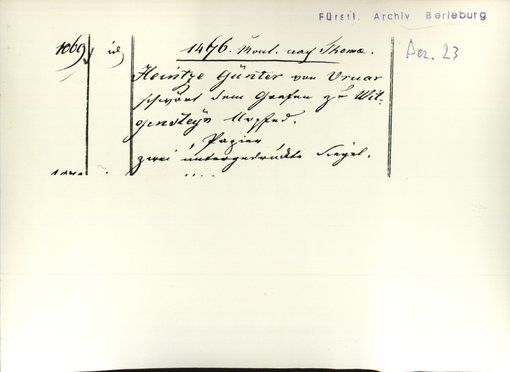 Fürstl. Archiv Berleburg
Dez. 23
1069, id
1476. Mont. nach Thomæ.
Heintze Günter von Vruar
schwört dem Grafen zu Wit-
gensteyn Urfed.
Papier
zwei untergedrückte Siegel.